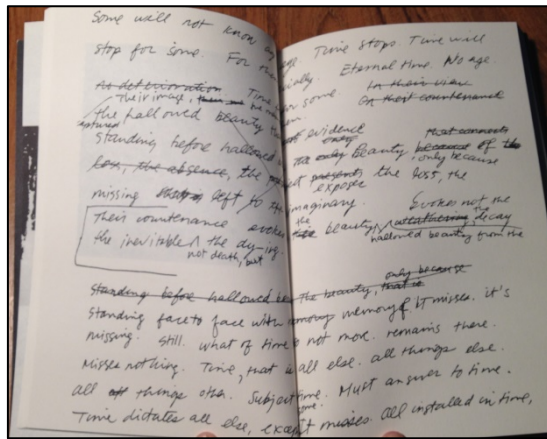 Some will not know age. Time stops. Time will
stop for some. For Eternal time. No age.
no deterioration Time for some
Their image, On their countenance
the hallowed beauty
captured
Standing before hallowed evidence
loss, the absence, the only Beauty, because of the
only because
missing expose the loss, the
left to the imaginary.
Their countenance evokes the beauty, Evokes not the
the inevitable, the dy-ing. decay
not death, but hallowed beauty from the
only because
Standing before hallowed the beauty, that
Standing face to face with memory memory. It misses. it's
missing. Still. what of time is not more. remains there.
Misses nothing. Time, that is all else. all things else.
all things other. Subject time. Must answer to time.
Time dictates all else, except misses. All installed in time,